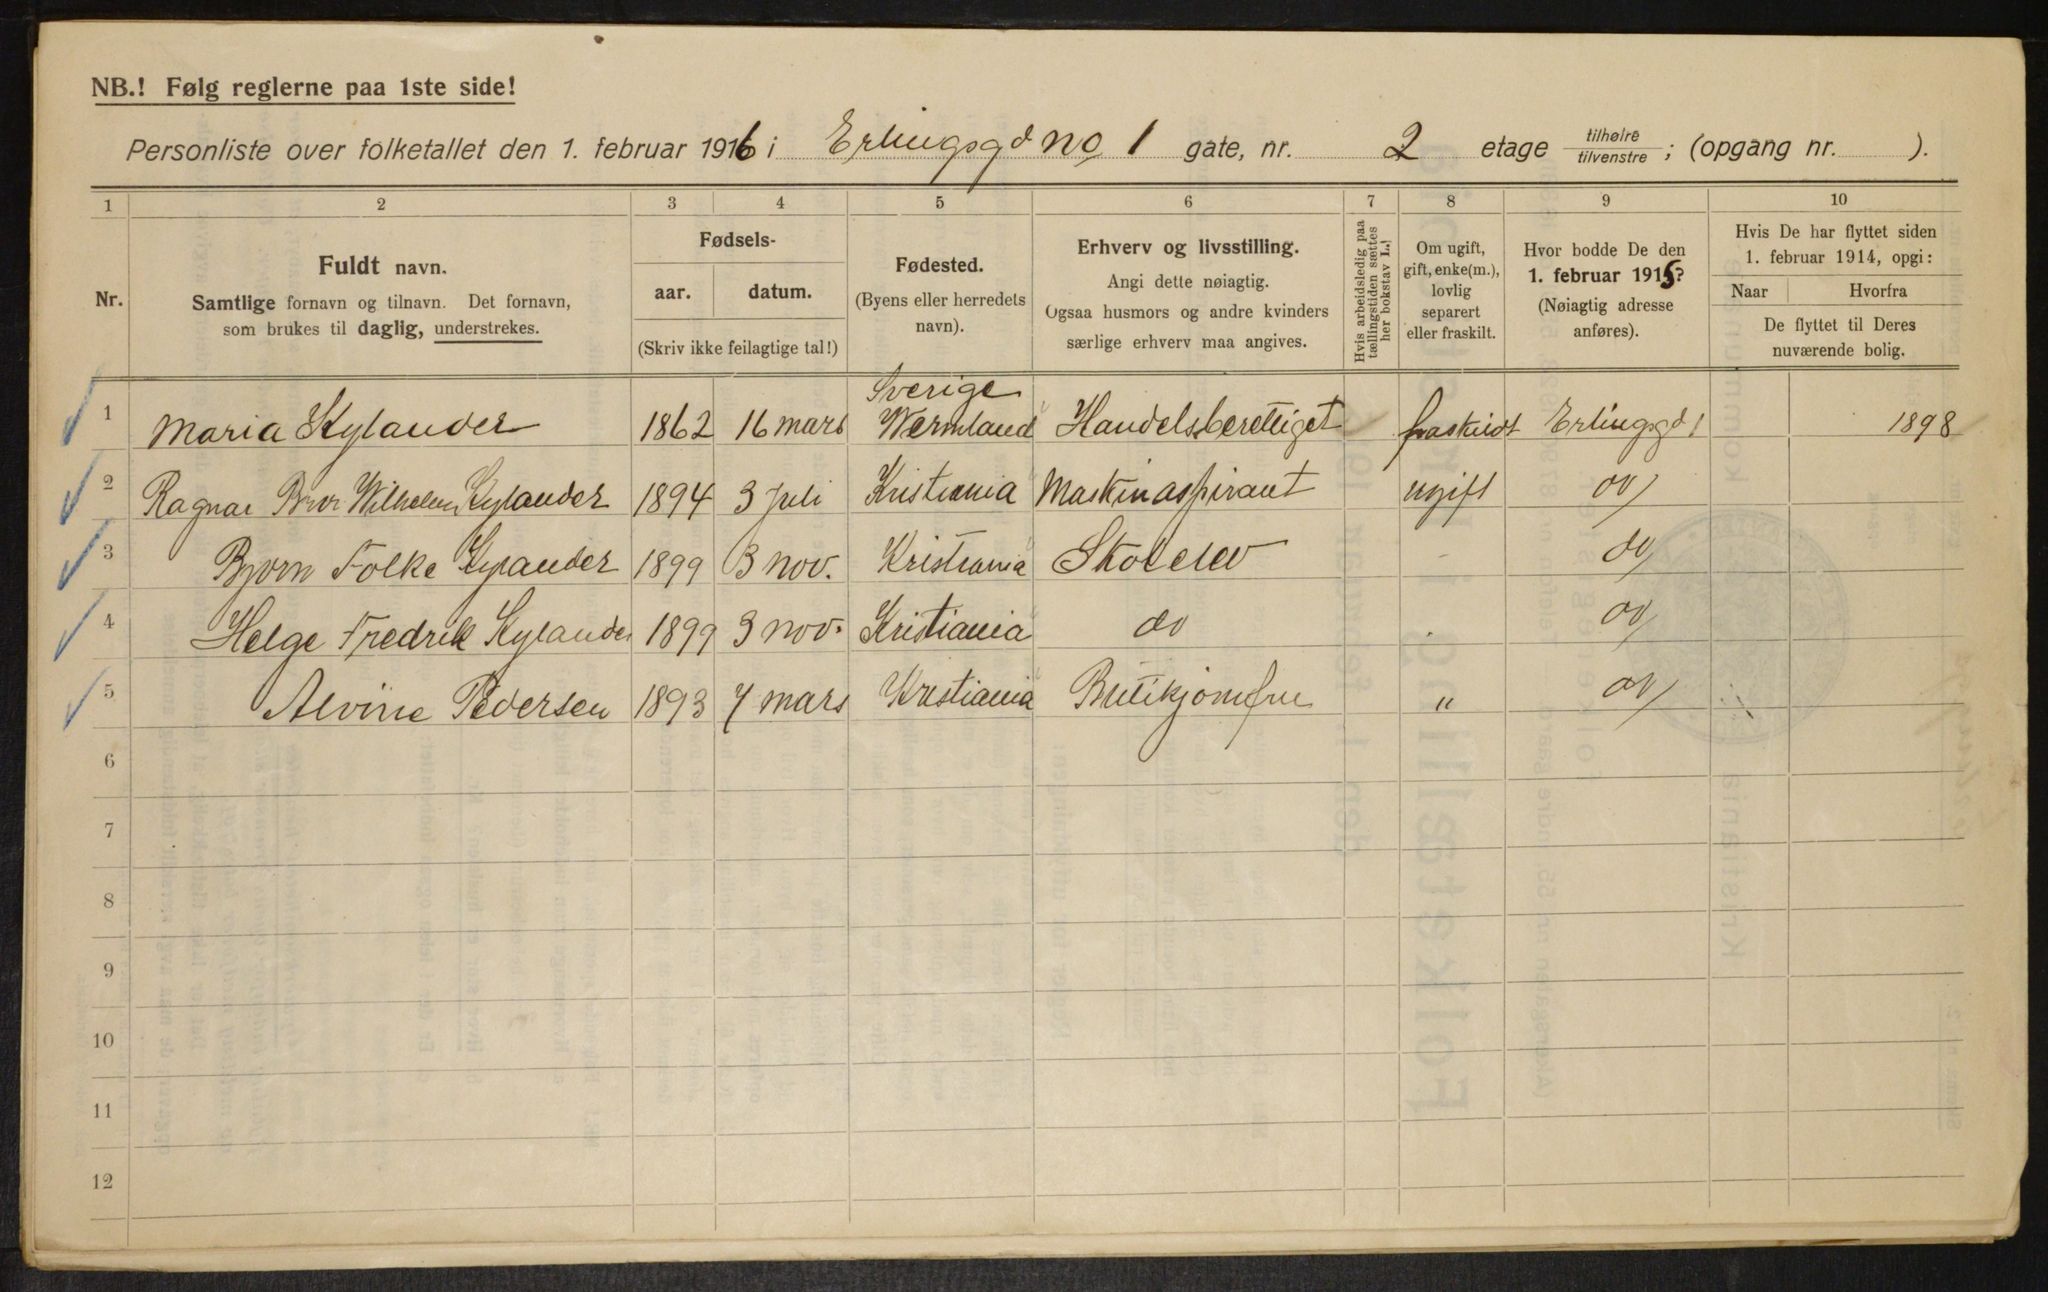 NB.! Følg reglerne paa 1ste side!
Personliste over folketallet den 1. februar 1916 i Erlingsgd no 1 gate, nr. 2 etage tilhøire/tilvenstre; (opgang nr. ).
1 2 3 4 5 6 7 8 9 10
Nr.
Fuldt navn.
Samtlige fornavn og tilnavn. Det fornavn,
som brukes til daglig, understrekes.
Fødsels-
aar. datum.
(Skriv ikke feilagtige tal!)
Fødested.
(Byens eller herredets
navn).
Erhverv og livsstilling.
Angi dette nøiagtig.
Ogsaa husmors og andre kvinders
særlige erhverv maa angives.
Hvis arbeidsledig paa
tællingstiden sættes
her bokstav L.!
Om ugift,
gift, enke(m.),
lovlig
separert
eller fraskilt.
Hvor bodde De den
1. februar 1915?
(Nøiagtig adresse
anføres).
Hvis De har flyttet siden
1. februar 1914, opgi:
Naar Hvorfra
De flyttet til Deres
nuværende bolig.
1 Maria Kylander 1862 16 mars Sverige Wermland Handelsberettiget fraskildt Erlingsgd 1 1898
2 Ragnar Bror Wilhelm Kylander 1894 3 Juli Kristiania Maskinaspirant ugift do
3 Bjorn Folke Kylander 1899 3 nov. Kristiania Skolelev do
4 Helge Fredrik Kylander 1899 3 nov. Kristiania do do
5 Alvine Pedersen 1893 7 mars Kristiania Butikjomfru " do
6
7
8
9
10
11
12